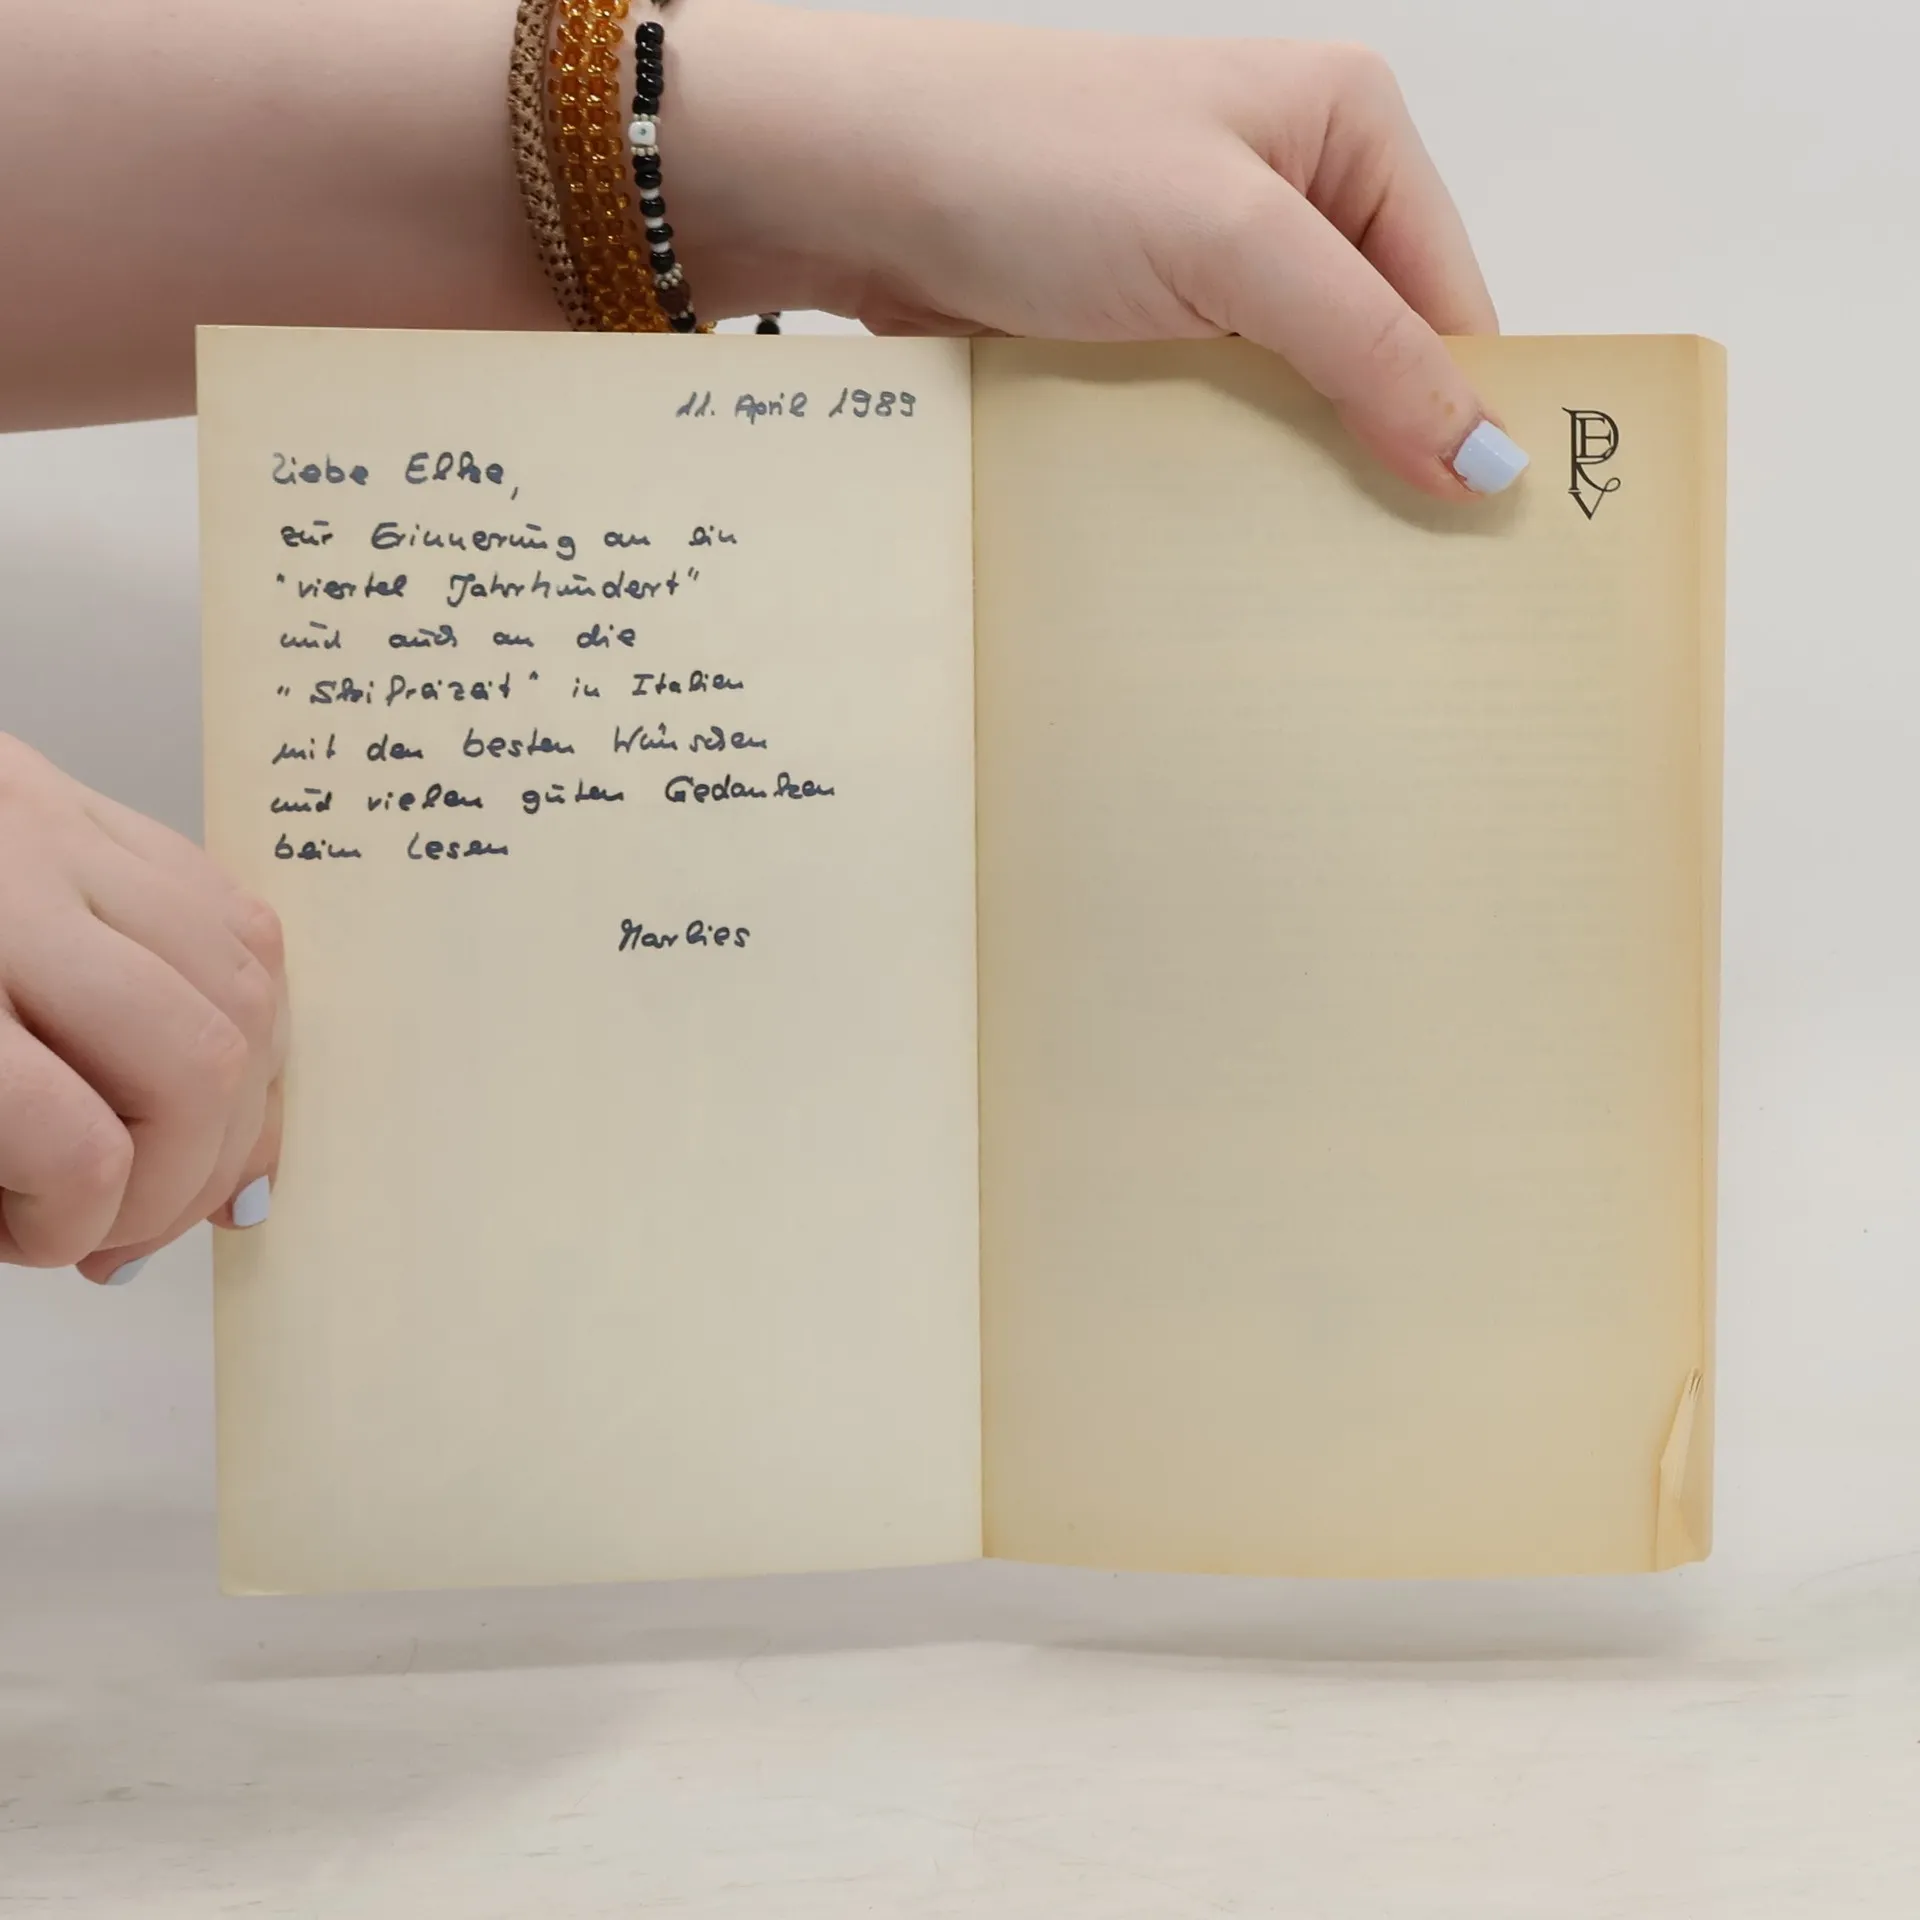 11. April 1989
Liebe Elke,
zur Erinnerung an ein
"viertel Jahrhundert"
und auch an die
"Skifreizeit" in Italien
mit den besten Wünschen
und vielen guten Gedanken
beim Lesen
Marlies